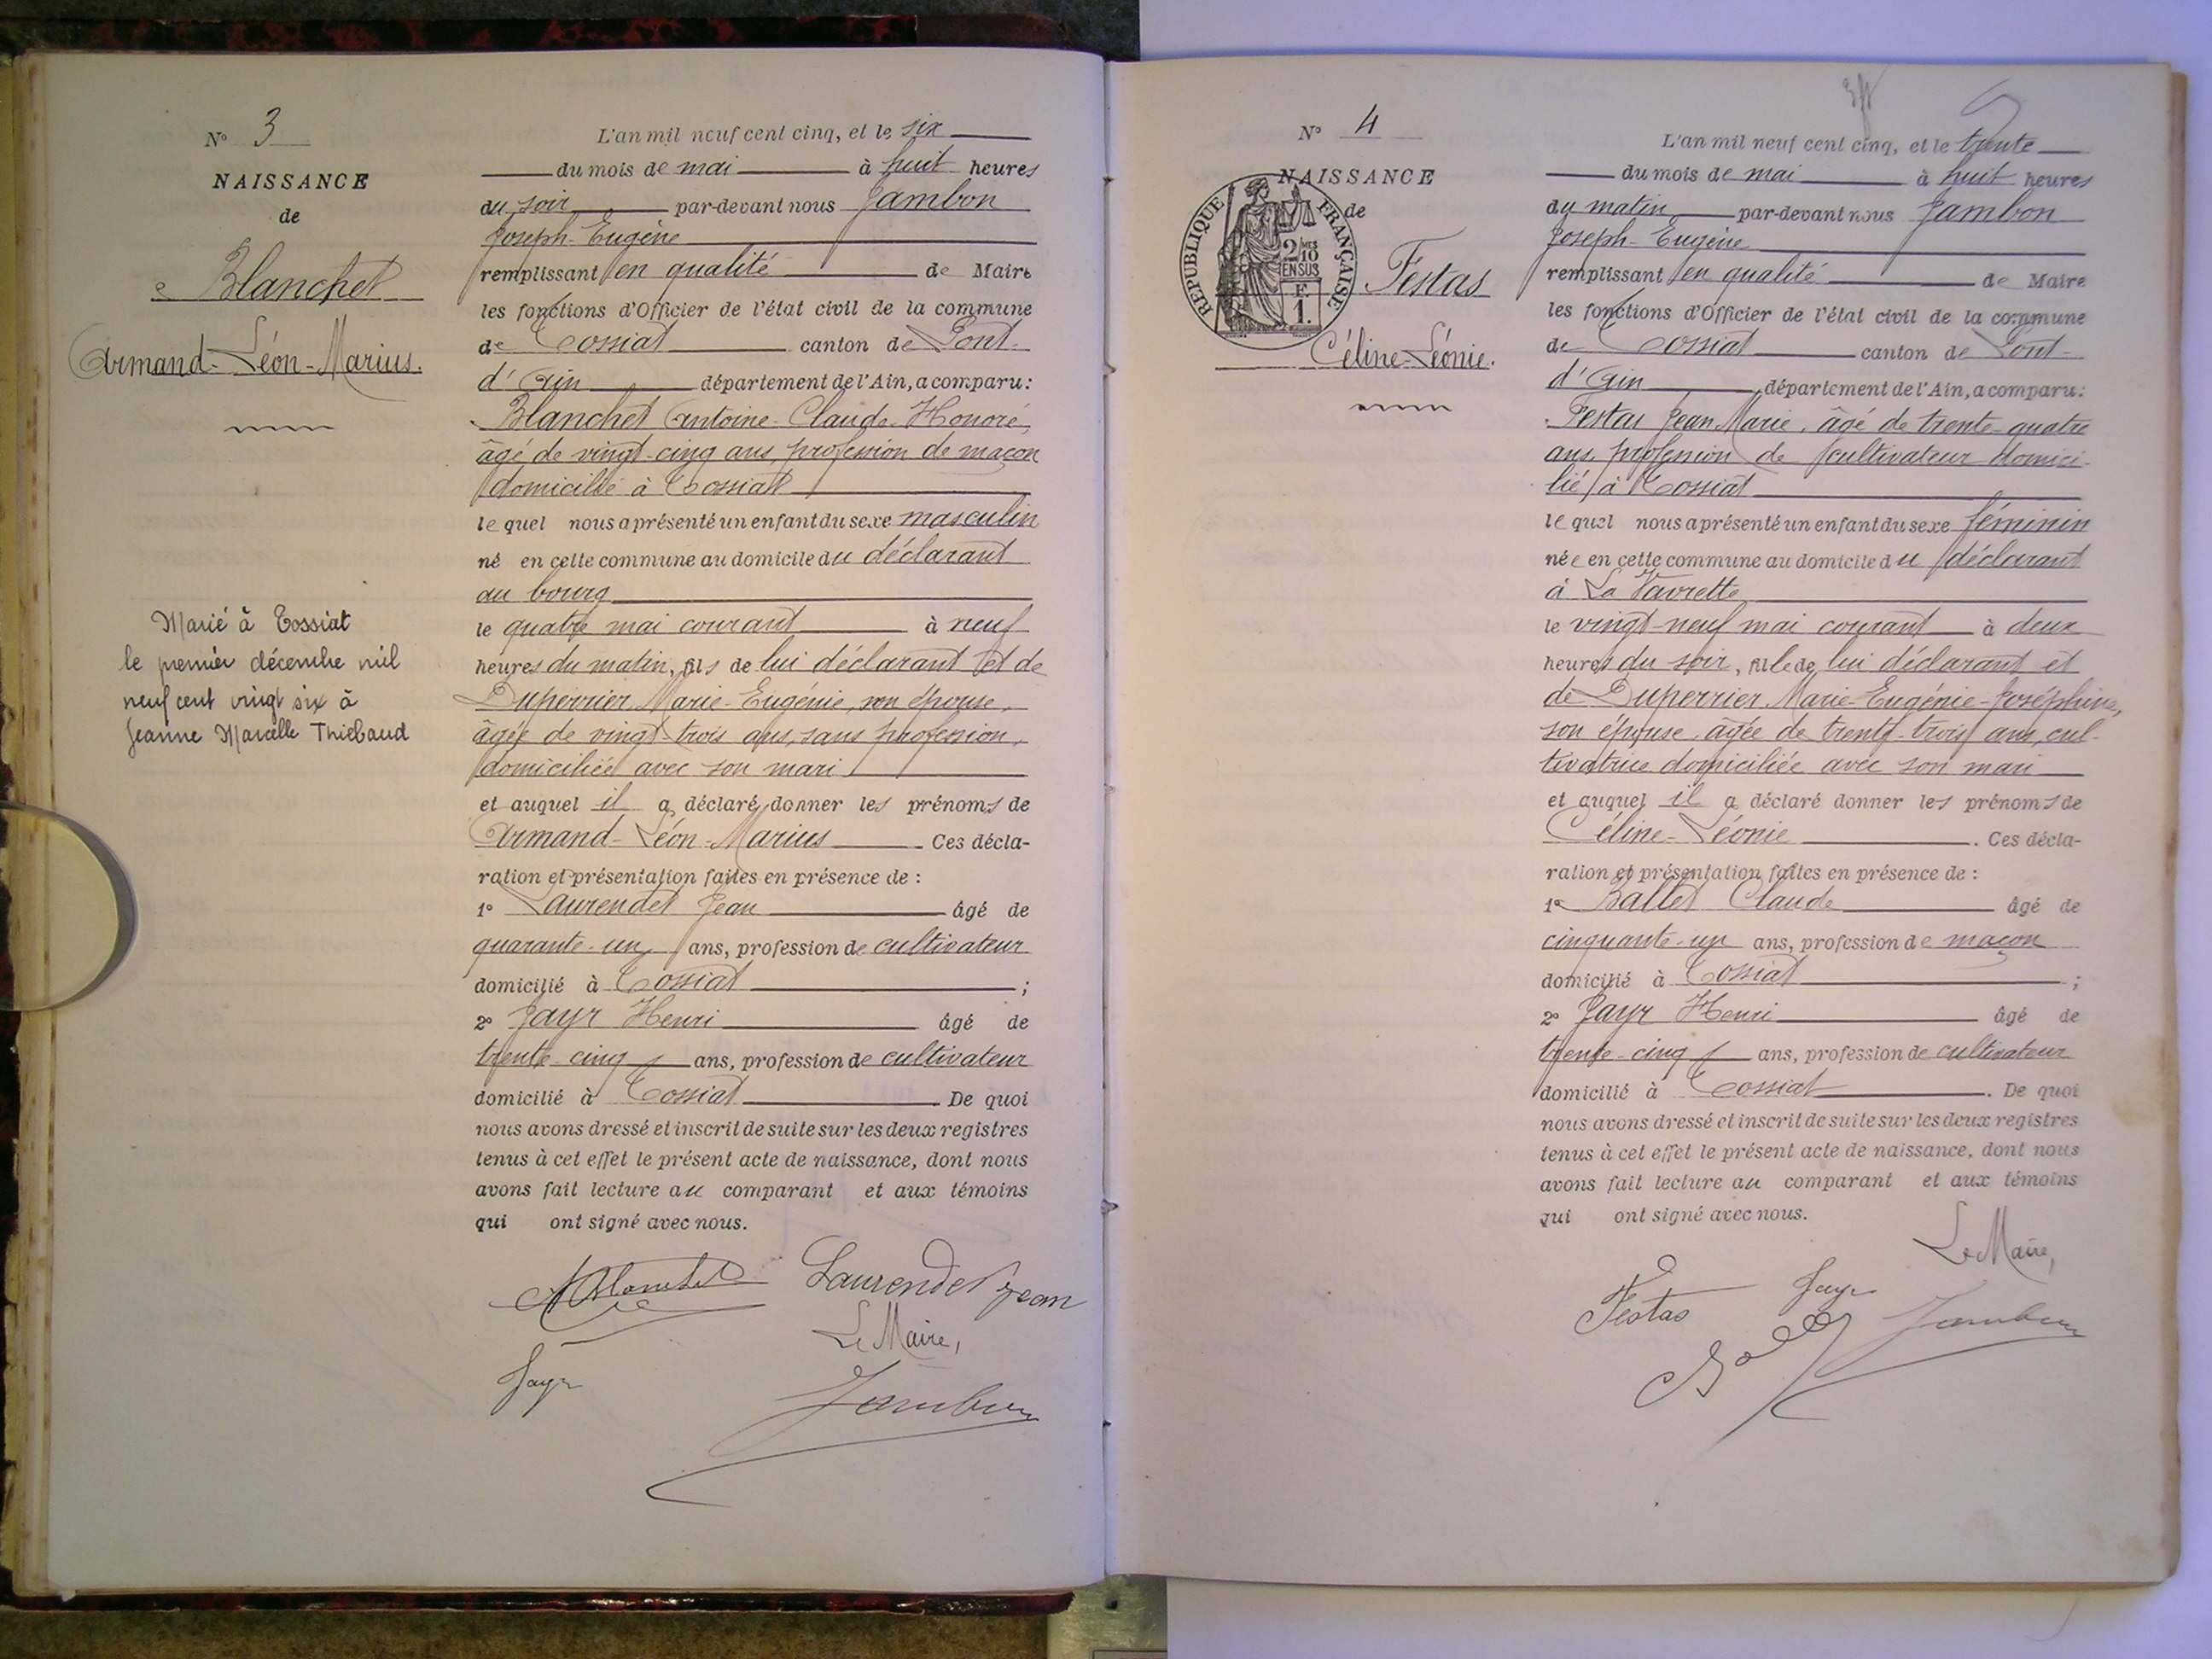 N° 3
NAISSANCE
de
Blanchet
Armand-Léon-Marius.
Marié à Tossiat
le premier décembre mil
neuf cent vingt six à
Jeanne Marcelle Thiebaud
L'an mil neuf cent cinq, et le six
du mois de mai à huit heures
du soir par-devant nous Jambon
Joseph-Eugène
remplissant en qualité de Maire
les fonctions d'Officier de l'état civil de la commune
de Tossiat canton de Pont-
d'Ain département de l'Ain, a comparu:
Blanchet Antoine-Claude-Honoré,
âgé de vingt-cinq ans, profession de maçon
domicilié à Tossiat
lequel nous a présenté un enfant du sexe masculin
né en cette commune au domicile du déclarant
au bourg
le quatre mai courant à neuf
heures du matin, fils de lui déclarant et de
Duperrier Marie-Eugénie, son épouse,
âgée de vingt-trois ans, sans profession,
domiciliée avec son mari
et auquel il a déclaré donner les prénoms de
Armand-Léon-Marius. Ces décla-
ration et présentation faites en présence de:
1° Laurendet Jean âgé de
quarante-un ans, profession de cultivateur
domicilié à Tossiat;
2° Jayr Henri âgé de
trente-cinq ans, profession de cultivateur
domicilié à Tossiat. De quoi
nous avons dressé et inscrit de suite sur les deux registres
tenus à cet effet le présent acte de naissance, dont nous
avons fait lecture au comparant et aux témoins
qui ont signé avec nous.
ABlanchet Laurendet Jean
Le Maire,
Jayr
Jambon
N° 4
NAISSANCE
de
RÉPUBLIQUE FRANÇAISE
2/10
EN SUS
F.
1.
Festas
Céline-Léonie.
L'an mil neuf cent cinq, et le trente
du mois de mai à huit heures
du matin par-devant nous Jambon
Joseph-Eugène
remplissant en qualité de Maire
les fonctions d'Officier de l'état civil de la commune
de Tossiat canton de Pont-
d'Ain, département de l'Ain, a comparu:
Festas Jean Marie, âgé de trente-quatre
ans, profession de cultivateur domici-
lié à Tossiat
lequel nous a présenté un enfant du sexe féminin
née en cette commune au domicile du déclarant
à La Vavrette
le vingt-neuf mai courant à deux
heures du soir, fille de lui déclarant et
de Duperrier Marie-Eugénie-Joséphine,
son épouse, âgée de trente-trois ans, cul-
tivatrice domiciliée avec son mari
et auquel il a déclaré donner les prénoms de
Céline-Léonie. Ces décla-
ration et présentation faites en présence de:
1° Ballet Claude âgé de
cinquante-un ans, profession de maçon
domicilié à Tossiat;
2° Jayr Henri âgé de
trente-cinq ans, profession de cultivateur
domicilié à Tossiat. De quoi
nous avons dressé et inscrit de suite sur les deux registres
tenus à cet effet le présent acte de naissance, dont nous
avons fait lecture au comparant et aux témoins
qui ont signé avec nous.
Le Maire,
Festas Jayr Jambon